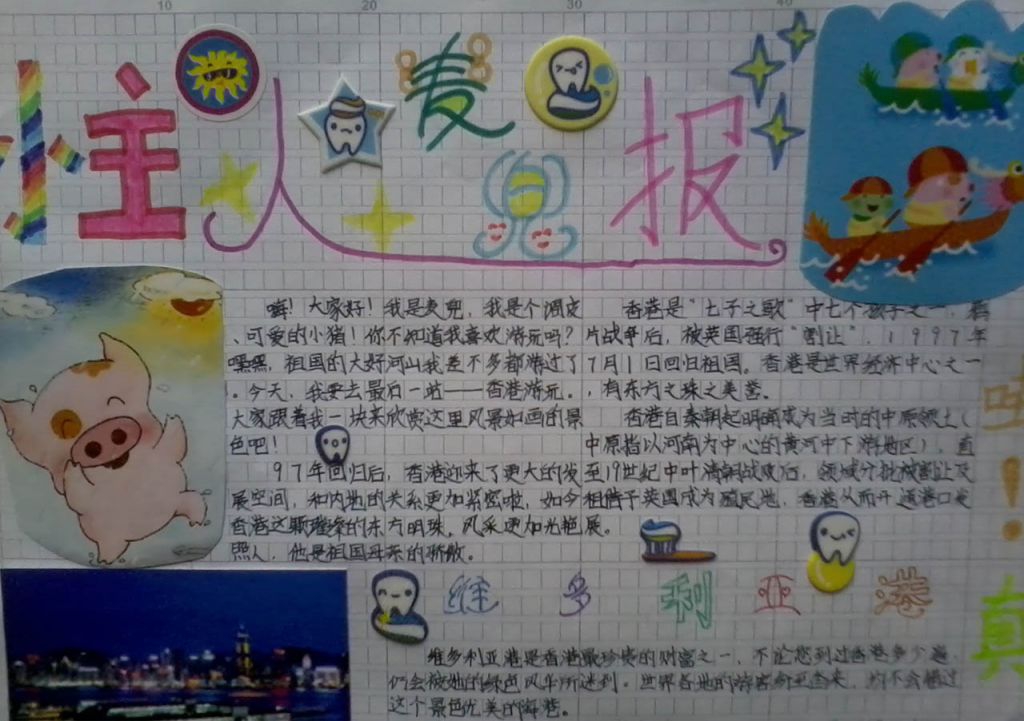 10 20 30 40
小主人麦兜报
嗨！大家好！我是麦兜，我是个调皮
、可爱的小猪！你不知道我喜欢游玩吗？
嘿嘿，祖国的大好河山我差不多都游过了
。今天，我要去最后一站——香港游玩。
大家跟着我一块来欣赏这里风景如画的景
色吧！
97年回归后，香港迎来了更大的发
展空间，和内地的关系更加紧密啦，如今
香港这颗璀璨的东方明珠，风采更加光艳
照人，他是祖国母亲的骄傲。
香港是“七子之歌”中七个孩子之一，鸦
片战争后，被英国强行“割让”，1997年
7月1日回归祖国。香港是世界经济中心之一
，有东方之珠之美誉。
香港自秦朝起明确成为当时的中原领土（
中原指以河南为中心的黄河中下游地区），直
至19世纪中叶清朝战败后，领域分批被割让及
租借于英国成为殖民地，香港从而开
展。
哇！
真
维多利亚港
维多利亚港是香港最珍贵的财富之一，不论您到过香港多少遍
仍会被她的绿色风华所迷到。世界各地的游客
这个景色优美的海港。